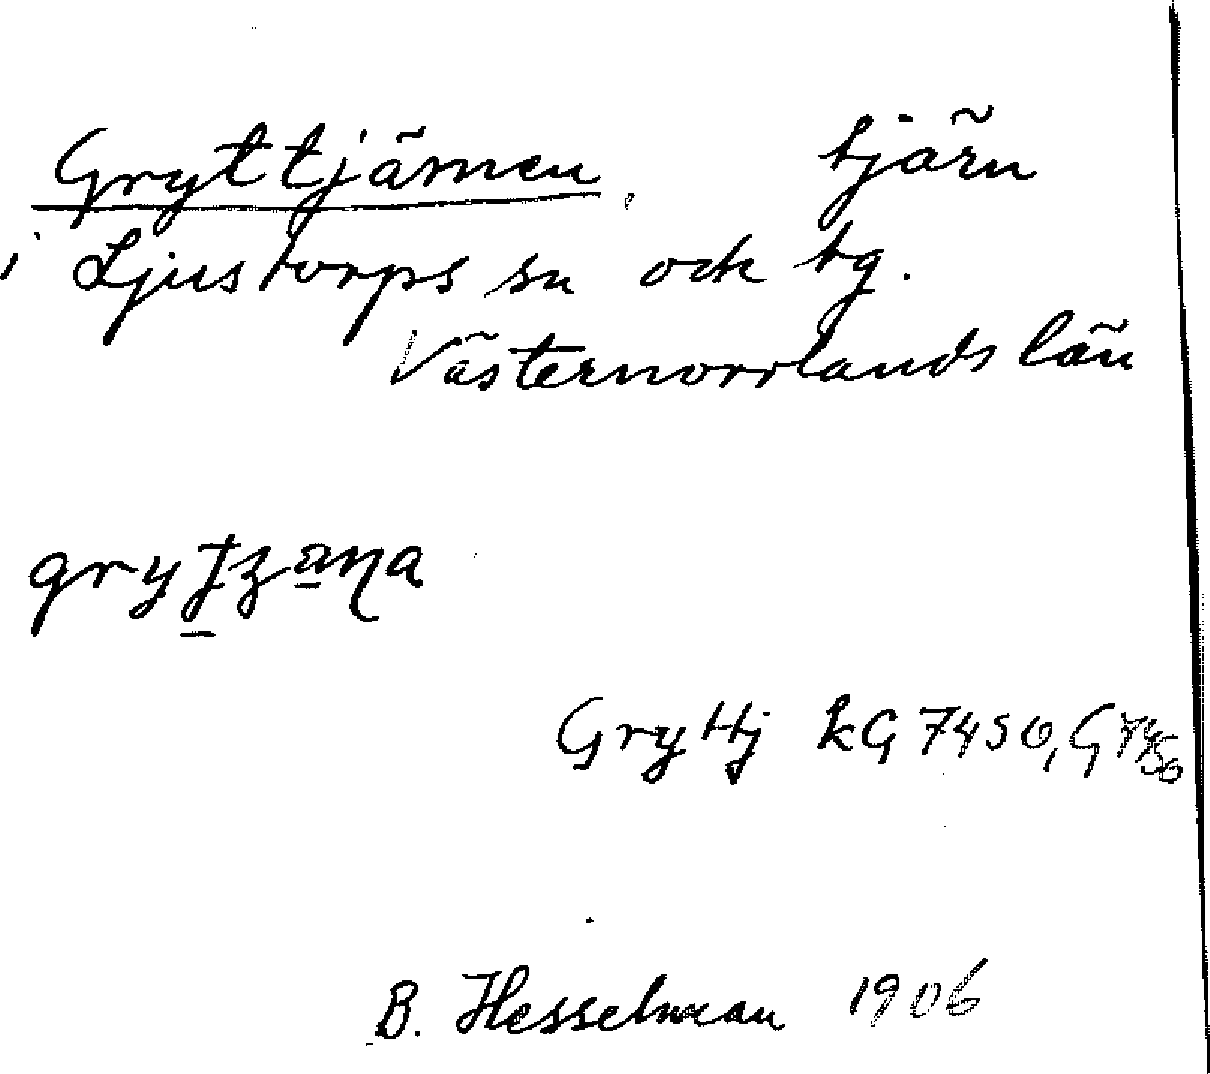 Gryttjärnen, tjärn
i Ljustorps sn och tg.
Västernorrlands län
Gryttj kG 7450, G
B. Hesselman 1906